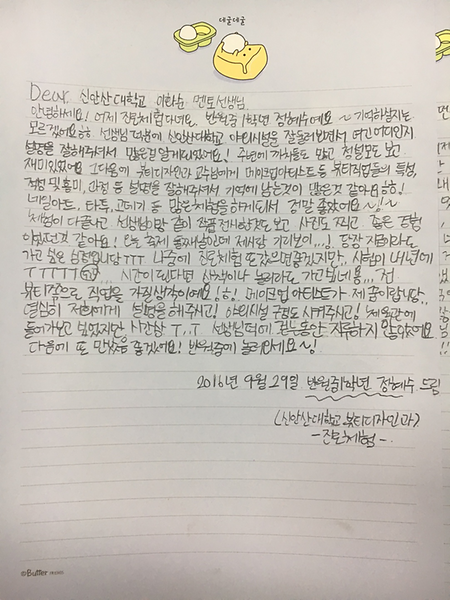 데굴데굴
Dear. 신안산대학교 이하늘 멘토선생님.
안녕하세요! 어제 진로체험 다녀온 반월중 1학년 정혜수예요 ~ 기억하실지는
모르겠어요ㅎㅎ 선생님 덕분에 신안산대학교 야외시설을 잘 둘러보면서 여긴 어디인지
설명을 잘해주셔서 많은걸 알게되었어요! 주변에 까치들도 많고 청설모도 보고
재미있었어요 그다음에 뷰티디자인과 교수님에게 메이크업아티스트 등 뷰티직업들의 특성,
적성 및 흥미, 과정 등 설명을 잘해주셔서 기억에 남는것이 많은것 같아요 ㅎㅎ!
네일아트, 타투, 고데기 등 많은체험을 하게되서 정말 좋았어요~!~!
체험이 다 끝나고 선생님이랑 같이 작품 전시한것도 보고 사진도 찍고 좋은 경험
이었던것 같아요! 오늘 축제 둘째날인데 제사랑 기리보이...! 당장 지금이라도
가고 싶은 심정입니당 TTT 나중에 진로체험 또 갔으면 좋겠지만, 시험이 내년에
TTTTT ... 시간이 된다면 산책이나 놀러라도 가고싶네용.. 전
뷰티쪽으로 직업을 가질생각이에요! ㅎ! 메이크업 아티스트가 제 꿈이랍니당..
열심히 저희에게 설명을 해주시고! 야외시설 구경도 시켜주시고! 체육관에
들어가보고 싶었지만 시간상 T..T 선생님덕에 걷는동안 지루하지 않았어요
다음에 또 만났음 좋겠어요! 반월중에 놀러오세요~!
2016년 9월 29일 반월중1학년 정혜수 드림
(신안산대학교 뷰티디자인과)
-진로체험-
©Butter